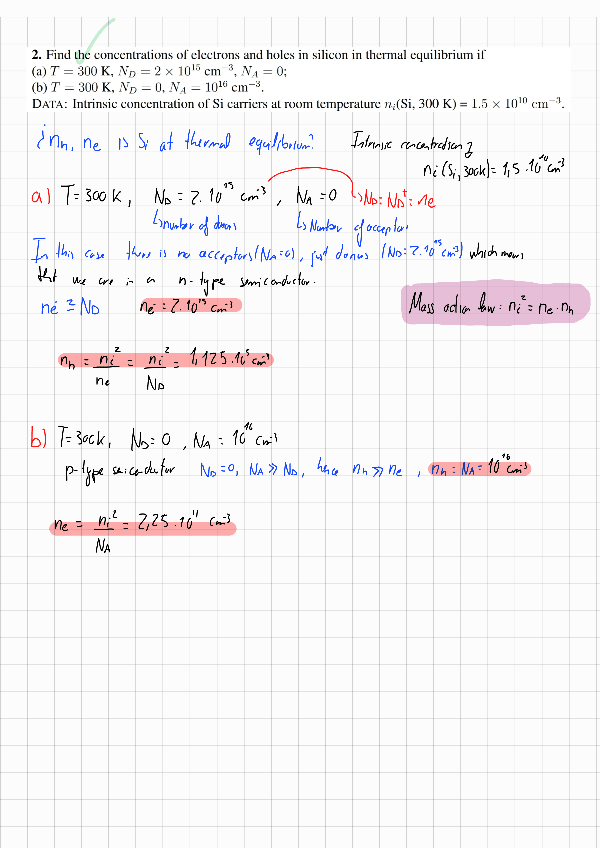 2. Find the concentrations of electrons and holes in silicon in thermal equilibrium if
(a) T = 300 K, N_D = 2 × 10^15 cm^−3, N_A = 0;
(b) T = 300 K, N_D = 0, N_A = 10^16 cm^−3.
DATA: Intrinsic concentration of Si carriers at room temperature n_i(Si, 300 K) = 1.5 × 10^10 cm^−3.
¿n_h, n_e is Si at thermal equilibrium?
Intrinsic concentration
n_i (Si, 300k) = 1,5 · 10^10 cm^-3
a) T = 300 K, N_D = 2 · 10^15 cm^-3, N_A = 0 ↳ N_D = N_D^+ = n_e
↳ number of donors ↳ Number of acceptors
In this case there is no acceptors (N_A = 0), just donors (N_D = 2·10^15 cm^-3) which means
that we are in a n-type semiconductor.
n_e ≅ N_D n_e = 2·10^15 cm^-3
Mass action law: n_i^2 = n_e · n_h
n_h = n_i^2/n_e = n_i^2/N_D = 1,125 · 10^5 cm^-3
b) T = 300k, N_D = 0, N_A = 10^16 cm^-3
p-type N_D = 0, N_A ≫ N_D, hence n_h ≫ n_e, n_h = N_A = 10^16 cm^-3
n_e = n_i^2/N_A = 2,25 · cm^-3